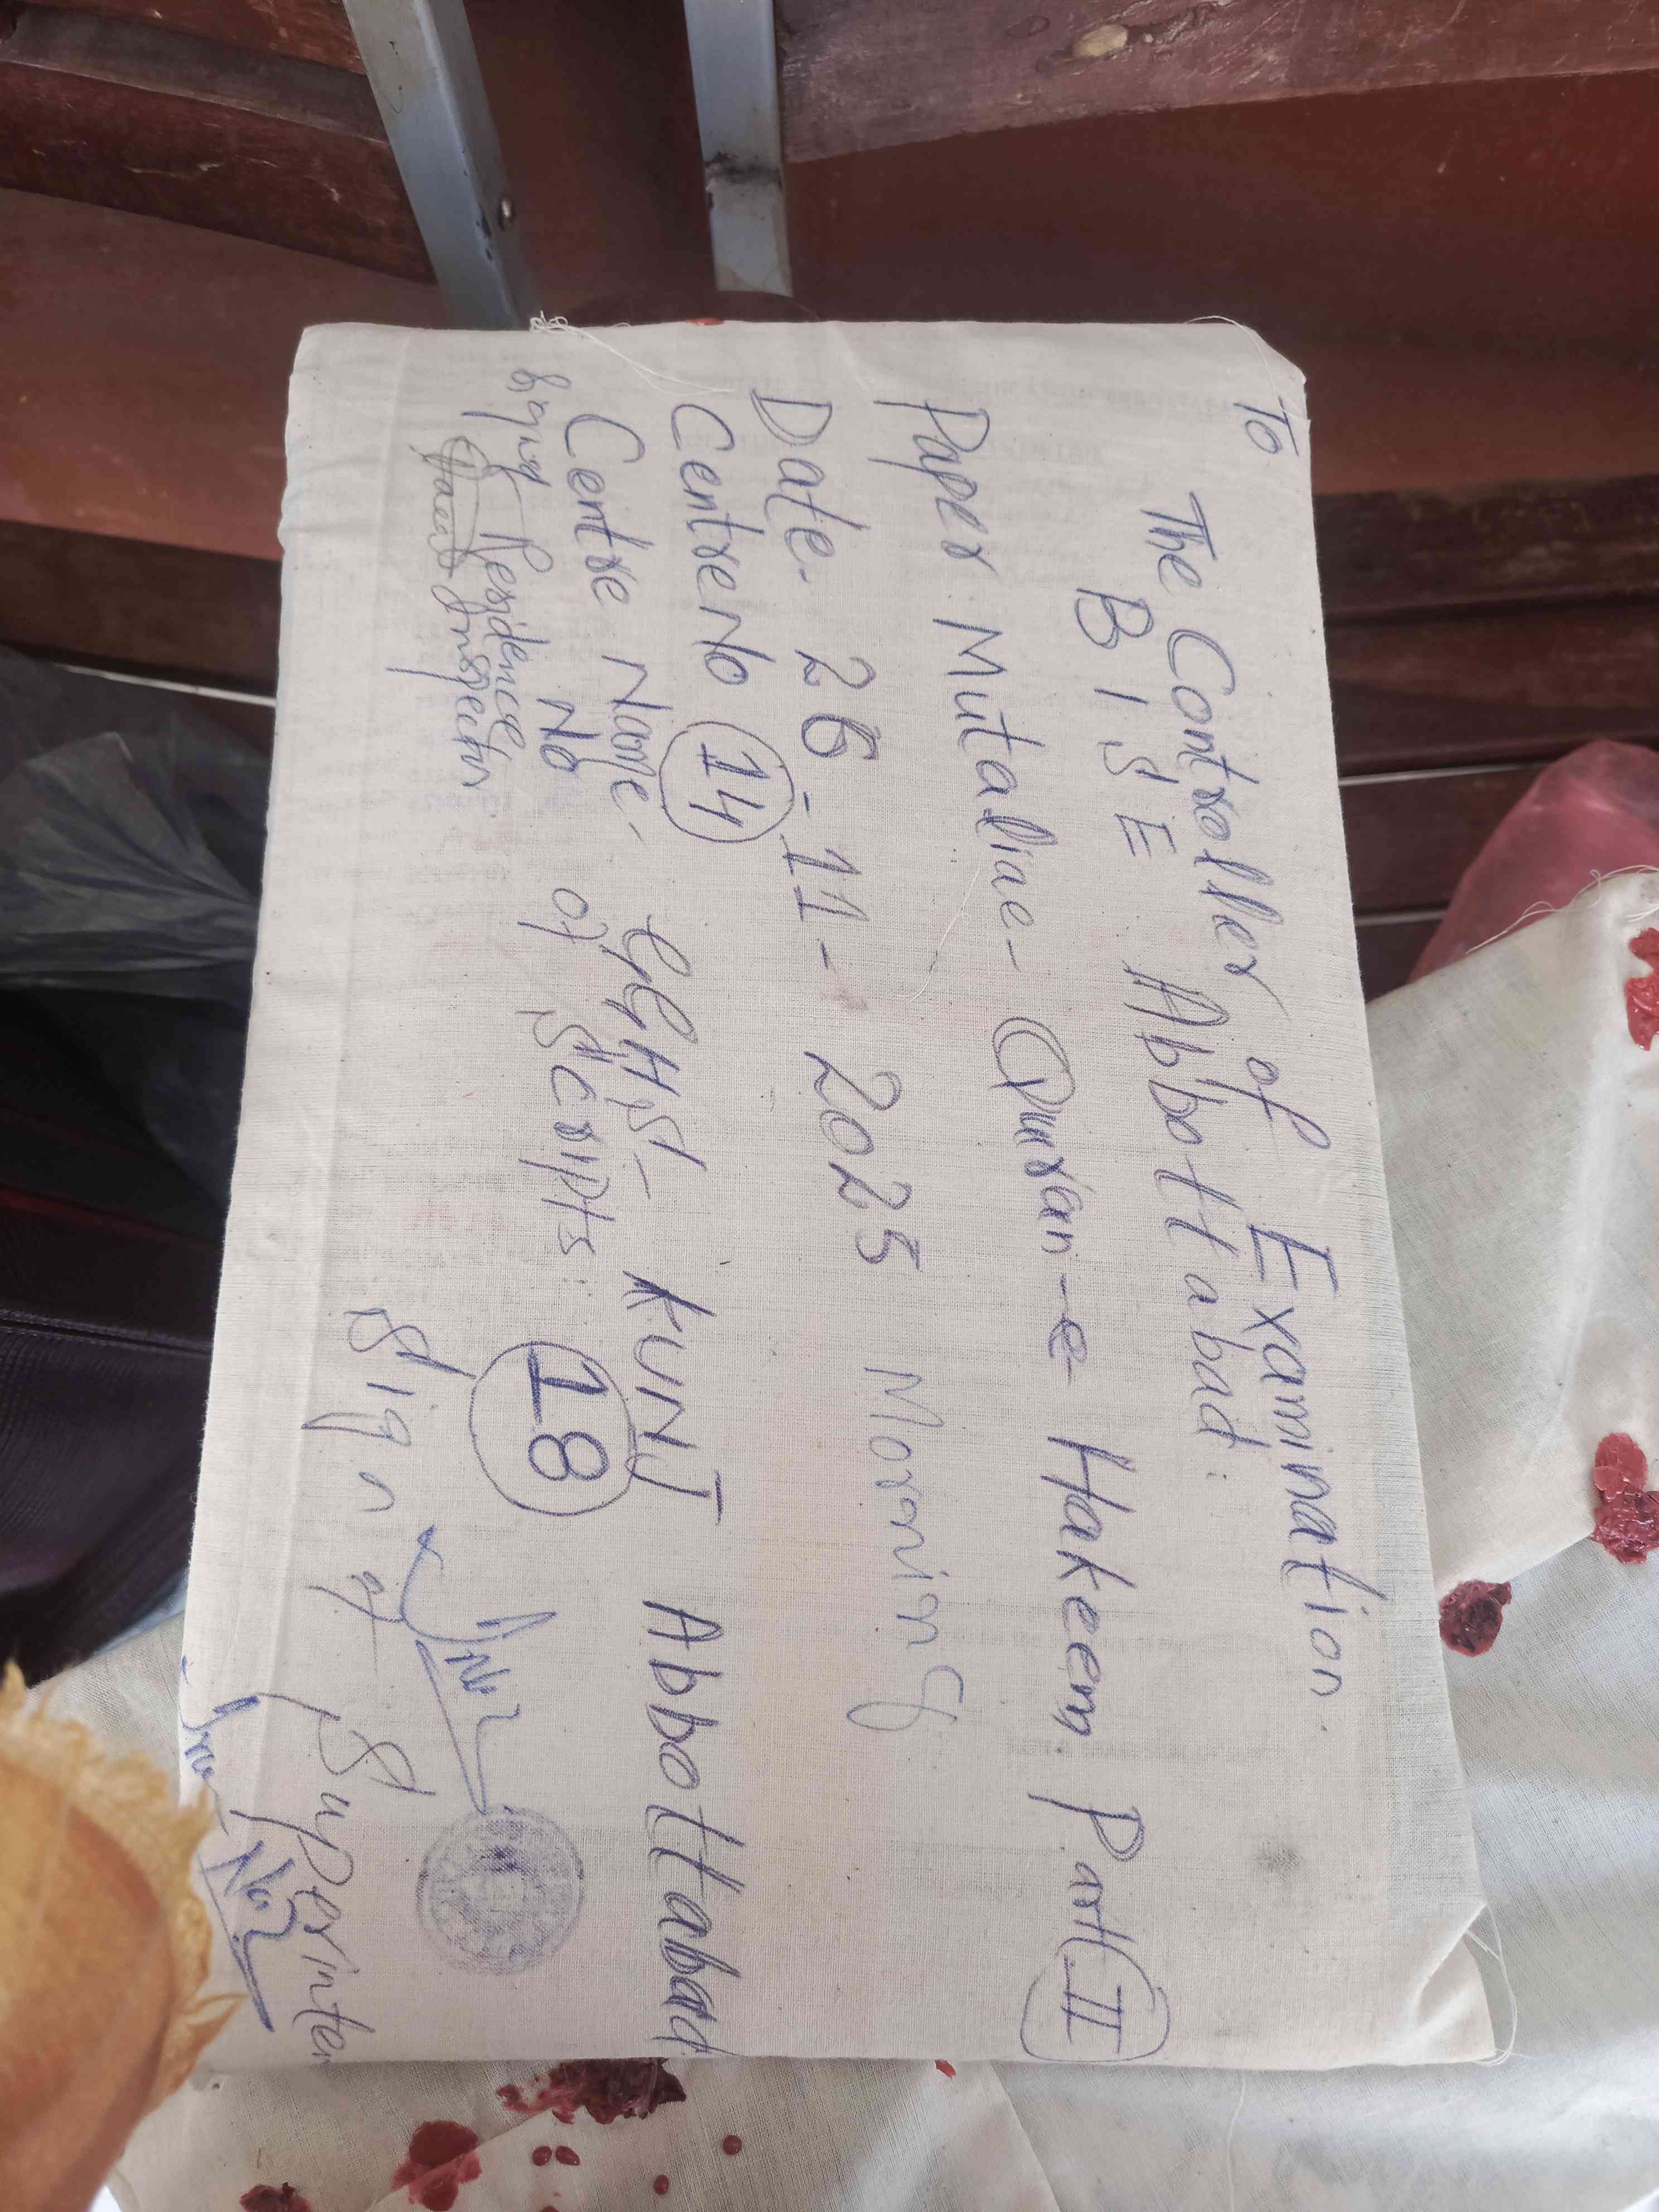 To
The Controller of Examination.
BISE Abbottabad:
Paper Mutaliae-Quran-e Hakeem Part II
Date. 26-11-2025 Morning
Centre No 14
Centre Name- GGHS- KUNJ Abbottabad
No of Scripts: 18
Residence
Inspector
Sign of Superinten